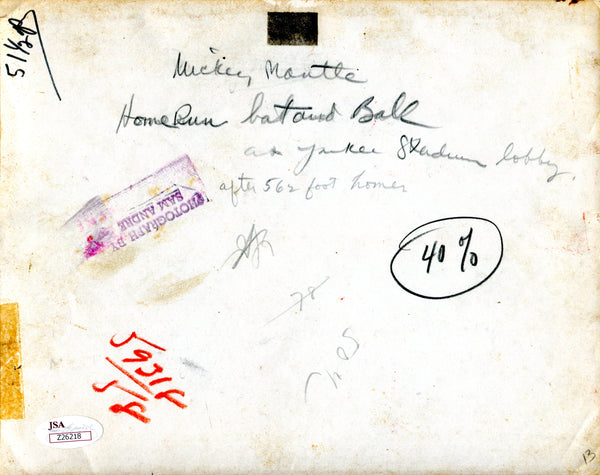 51½B
Mickey Mantle
Home Run bat and Ball
at Yankee Stadium lobby.
after 562 foot homer
PHOTOGRAPH BY
SAM ANDRE
40%
78
JSA
Z26218
13